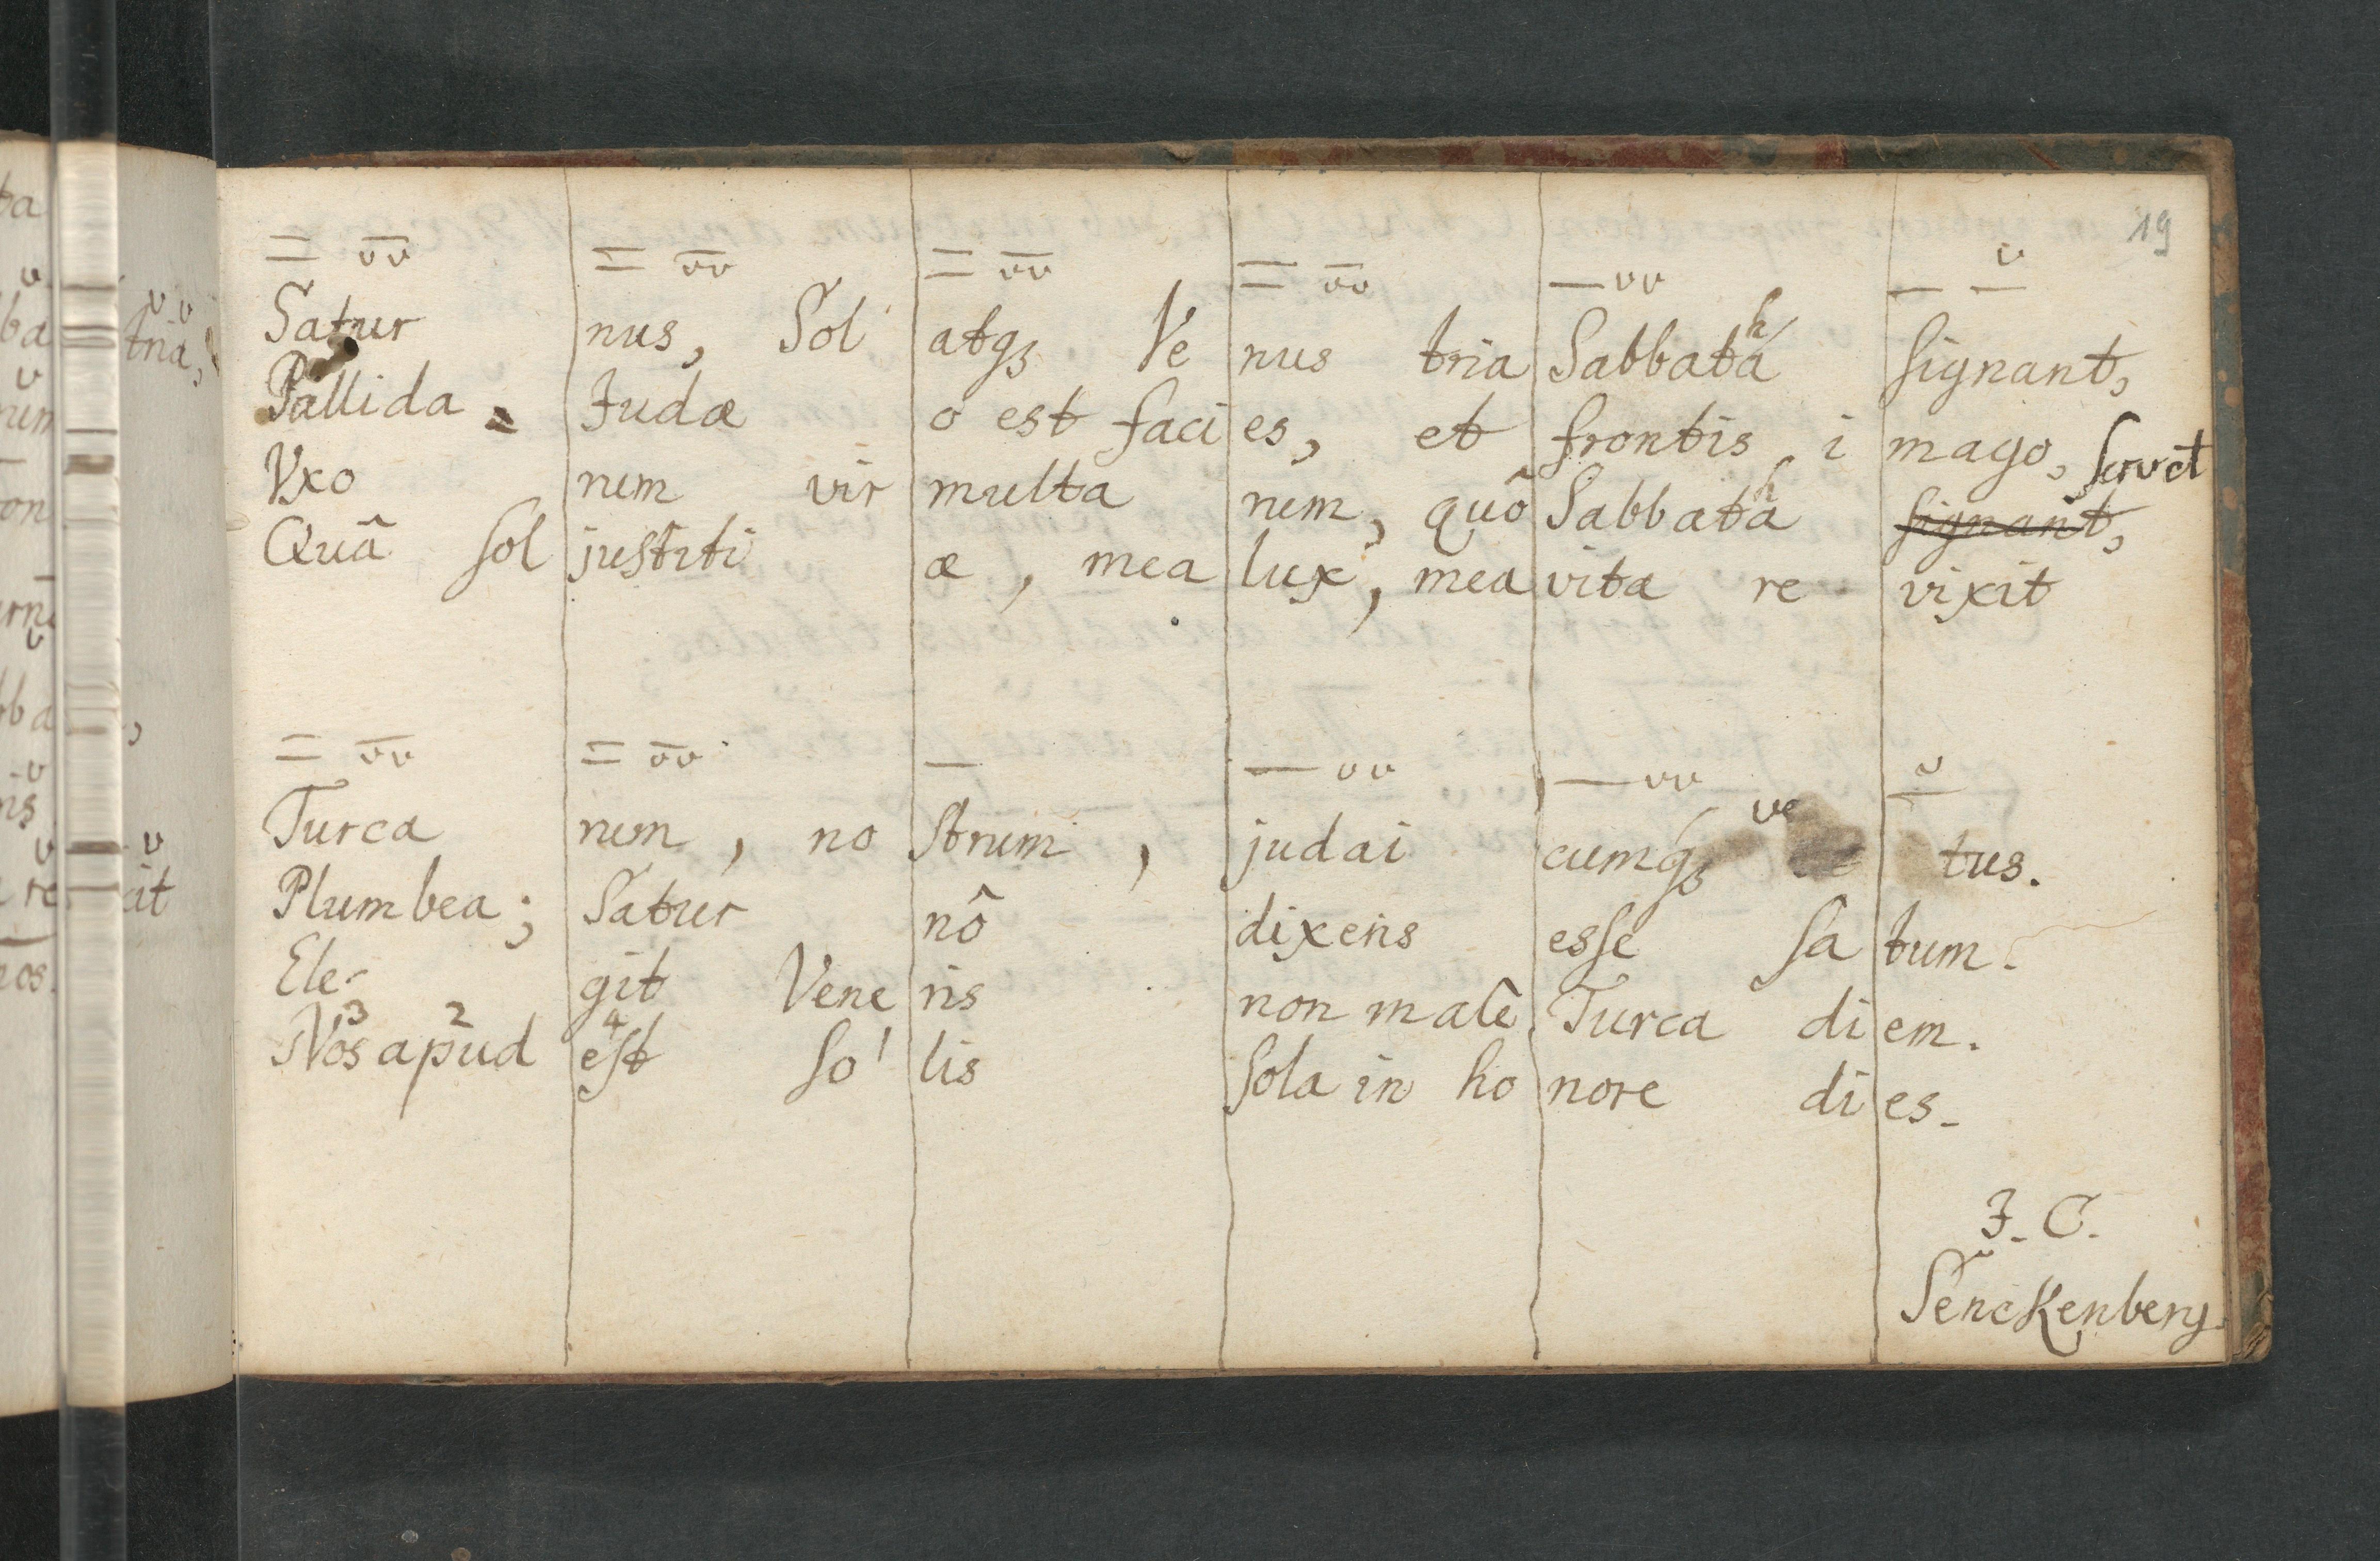 19
Satur nus, Sol atq3 Ve nus tria Sabbatha signant,
Pallida = Judæ o est faci es, et frontis i mago,
Uxo rem vir multa rum, quô Sabbatha signant, servet
Quâ sol justiti æ, mea lux, mea vita re vixit
Turca rum, no strum, judai cumq3 ve tus.
Plumbea; Satur nô dixeris esse sa tum.
Ele- git Vene ris non malè Turca di em.
3 2 4 1
Nos apud est so lis sola in ho nore di es.
J. C.
Senckenberg.